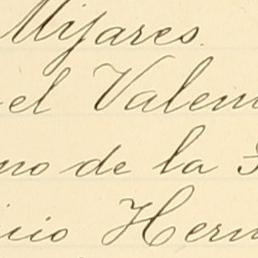 Mijares.
el Valen
no de la
icio Hern